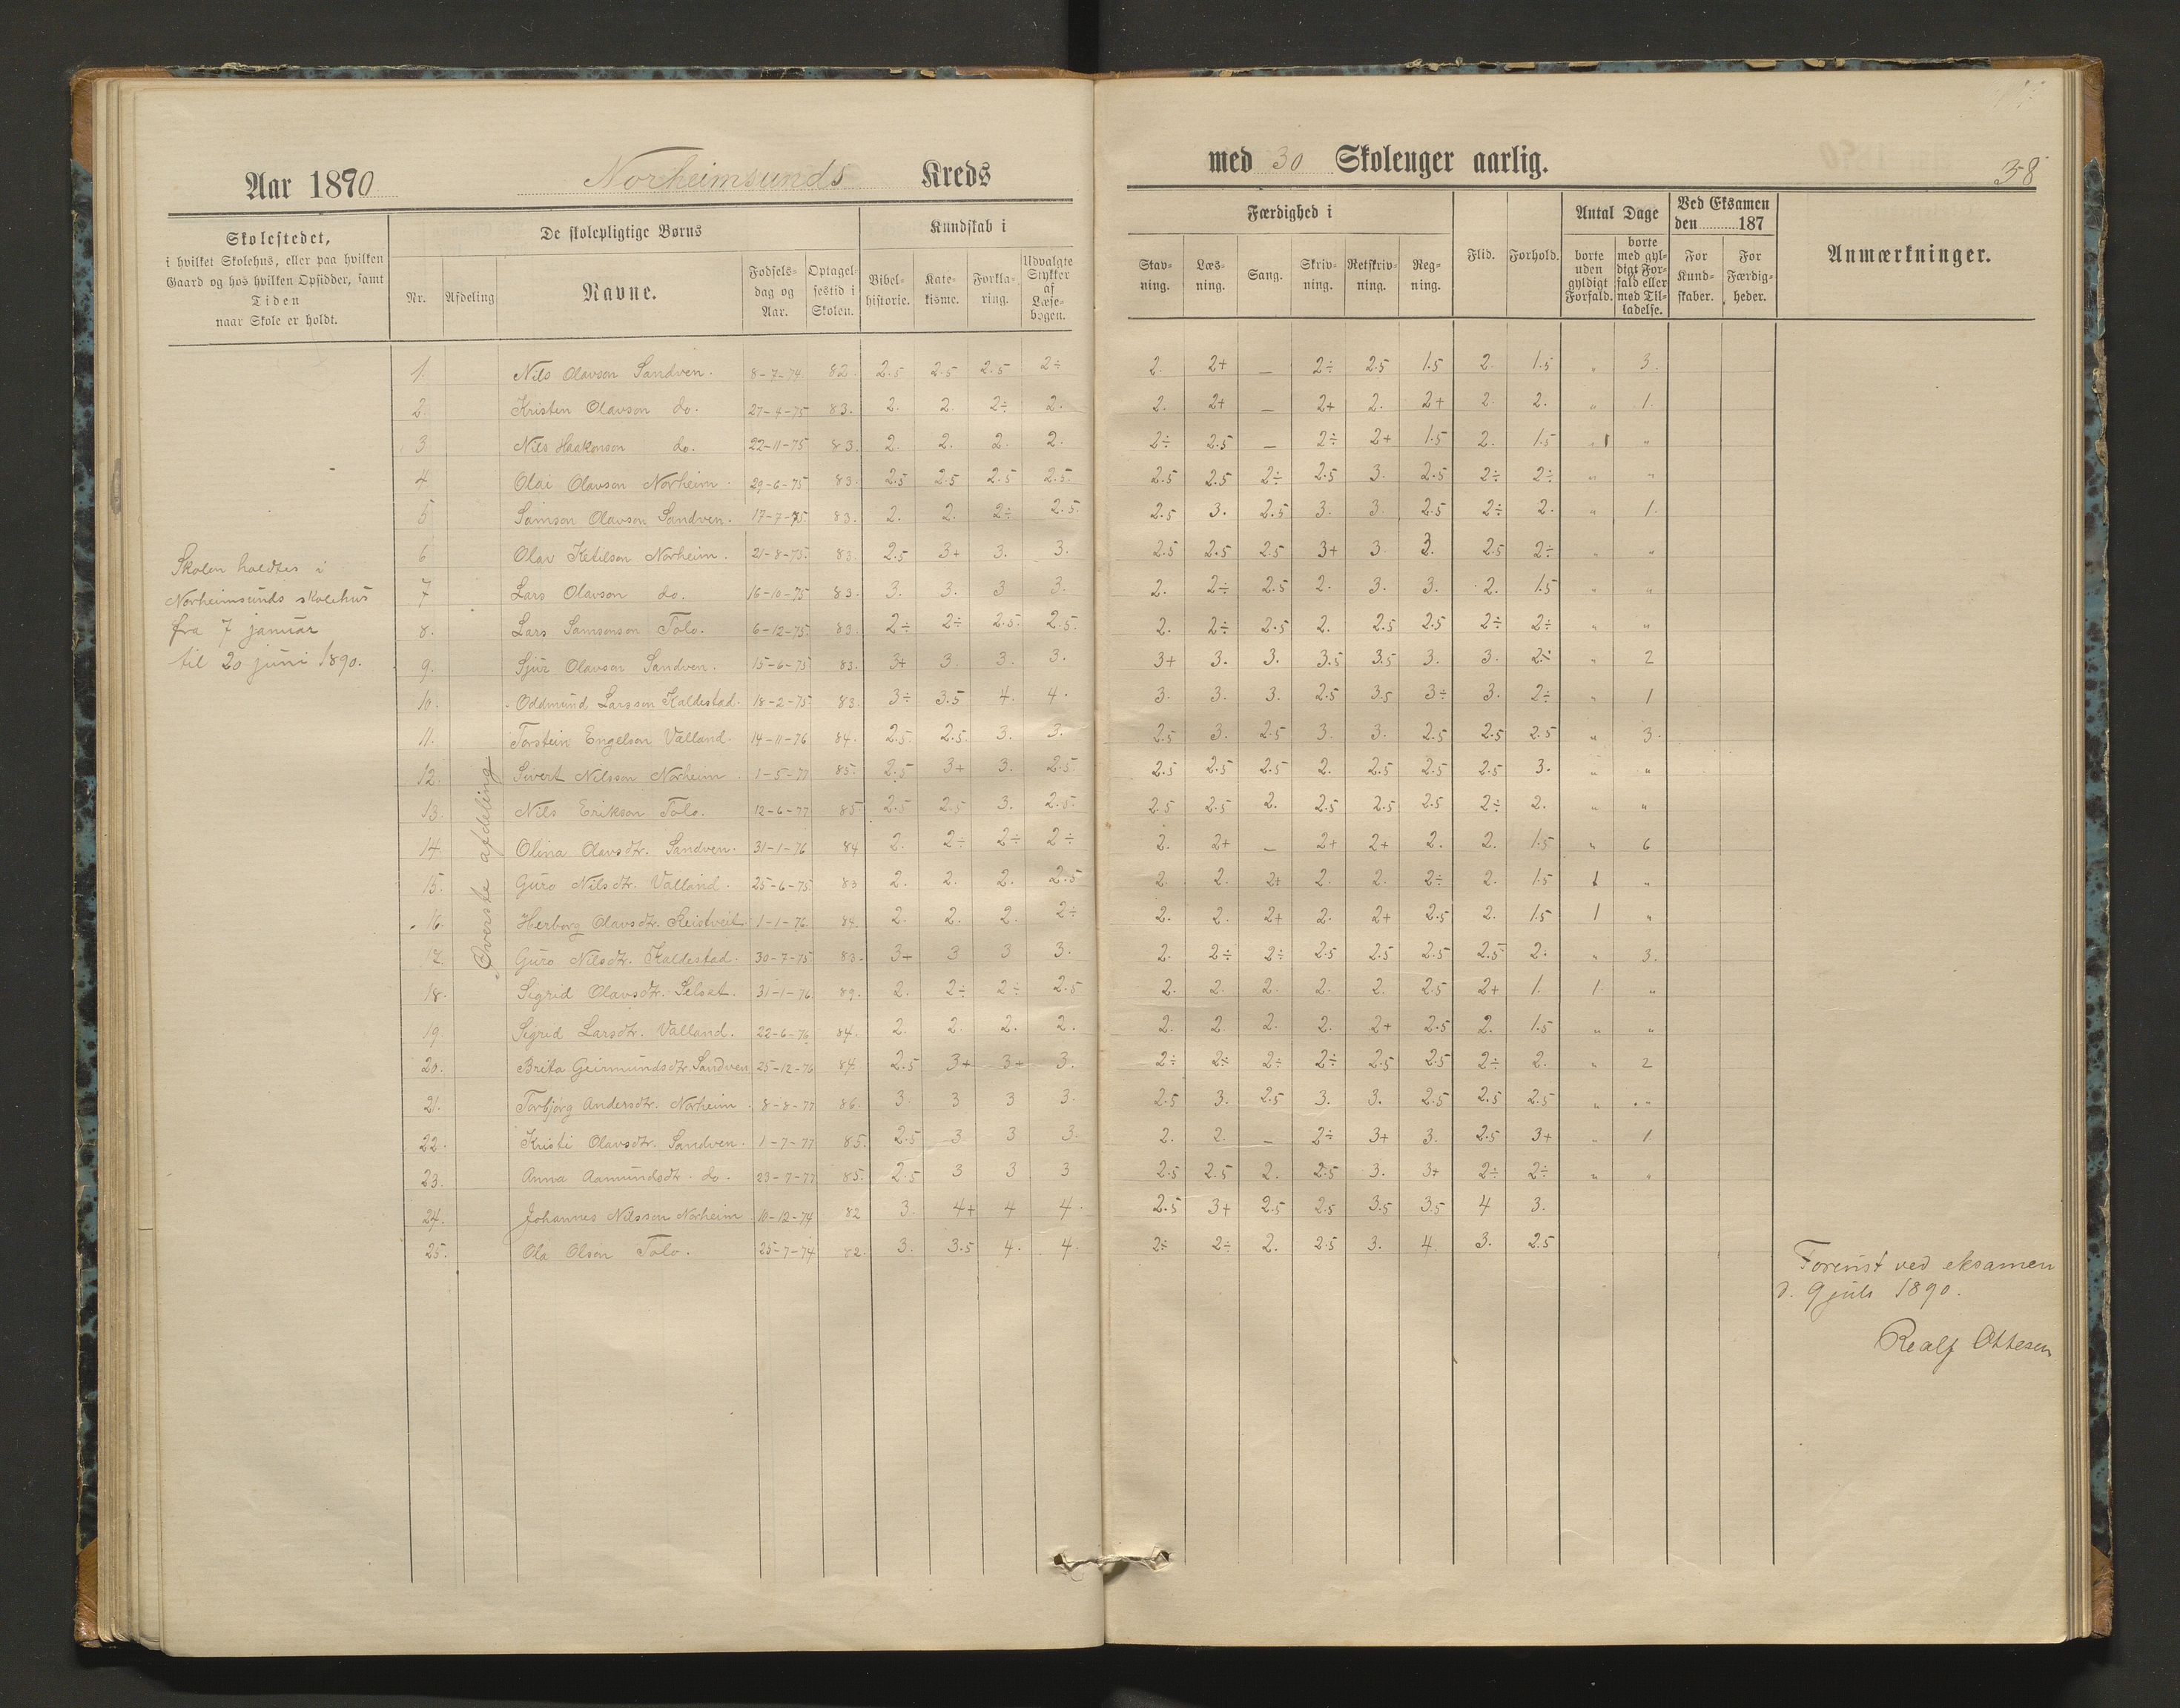 Aar 1890 Norheimsunds Kreds
med 30 Skoleuger aarlig.
38
Skolestedet,
i hvilket Skolehus, eller paa hvilken
Gaard og hos hvilken Opsidder, samt
Tiden
naar Skole er holdt.
De skolepligtige Børns
Nr. Afdeling Navne. Fødselsdag og Aar. Optagelsestid i Skolen.
Kundskab i
Bibelhistorie. Katekisme. Forklaring. Udvalgte Stykker af Læsebogen.
Færdighed i
Stavning. Læsning. Sang. Skrivning. Retskrivning. Regning.
Flid. Forhold.
Antal Dage
borte uden gyldigt Forfald. borte med gyldigt Forfald eller med Tilladelse.
Ved Eksamen
den 187
For Kundskaber. For Færdigheder.
Anmærkninger.
Skolen holdtes i
Norheimsunds skolehus
fra 7 januar
til 20 juni 1890.
Øverste afdeling
1. Nils Olavson Sandven. 8-7-74. 82. 2.5 2.5 2.5 2÷ 2. 2+ — 2÷ 2.5 1.5 2 1.5 " 3.
2. Kristen Olavson do. 27-4-75 83. 2. 2. 2÷ 2. 2. 2+ — 2+ 2. 2+ 2. 2. " 1.
3 Nils Haakonson do. 22-11-75 83. 2. 2. 2. 2. 2÷ 2.5 — 2÷ 2+ 1.5 2. 1.5 " 1 "
4 Olai Olavson Norheim. 29-6-75 83. 2.5 2.5 2.5 2.5. 2.5 2.5 2÷ 2.5 3. 2.5 2÷ 2÷ " "
5 Samson Olavson Sandven. 17-7-75. 83. 2. 2. 2÷ 2.5. 2.5 3. 2.5 3. 3. 2.5 2÷ 2. " 1.
6 Olav Ketilson Norheim. 21-8-75. 83. 2.5 3+ 3. 3. 2.5 2.5 2.5 3+ 3. 3. 2.5 2÷ " "
7 Lars Olavson do. 16-10-75 83. 3. 3. 3 3. 2. 2÷ 2.5 2. 3. 3. 2. 1.5 " "
8. Lars Samsonson Tolo. 6-12-75. 83. 2÷ 2÷ 2.5. 2.5. 2. 2÷ 2.5 2. 2.5 2.5 2÷ 2÷ " "
9. Sjur Olavson Sandven. 15-6-75 83. 3+ 3 3. 3. 3+ 3. 3. 3.5 3.5 3. 3. 2÷ " 2
10. Oddmund Larsson Kaldestad. 18-2-75. 83. 3÷ 3.5 4. 4. 3. 3. 3. 2.5 3.5 3÷ 3. 2÷ " 1
11. Torstein Engelson Valland. 14-11-76 84. 2.5. 2.5. 3. 3. 2.5 3. 2.5 3. 3. 2.5 2.5 2.5 " 3.
12. Sivert Nilsson Norheim. 1-5-77 85. 2.5 3+ 3. 2.5 2.5 2.5 2.5 2. 2.5 2.5 2.5 3. " "
13. Nils Erikson Tolo. 12-6-77 85 2.5 2.5 3. 2.5. 2.5 2.5 2. 2.5 2.5 2.5 2÷ 2. " "
14. Olina Olavsdtr. Sandven. 31-1-76 84 2. 2÷ 2÷ 2÷ 2. 2+ — 2+ 2+ 2. 2. 1.5 " 6
15. Guro Nilsdtr. Valland. 25-6-75 83 2. 2. 2. 2.5 2. 2. 2+ 2. 2. 2÷ 2. 1.5 1 "
16. Herborg Olavsdtr. Reistveit. 1-1-76 84. 2. 2. 2. 2÷ 2. 2. 2+ 2. 2+ 2.5 2. 1.5 1 "
17. Guro Nilsdtr. Kaldestad. 30-7-75 83. 3+ 3 3 3. 2. 2÷ 2÷ 2.5 2.5 2.5 2.5 2. " 3.
18. Sigrid Olavsdtr. Selset. 31-1-76 89. 2. 2÷ 2÷ 2.5 2. 2. 2. 2. 2. 2.5 2+ 1. 1. "
19. Sigrid Larsdtr. Valland. 22-6-76 84. 2. 2. 2. 2. 2. 2. 2. 2. 2+ 2.5 2. 1.5 " "
20. Brita Geirmundsdtr. Sandven 25-12-76 84 2.5 3+ 3+ 3. 2÷ 2÷ 2÷ 2÷ 2.5 2.5 2÷ 2. " 2
21. Torbjørg Andersdtr. Norheim. 8-8-77 86. 3. 3 3 3. 2.5 3. 2.5 3. 3. 2.5 2.5 2.5 " "
22. Kristi Olavsdtr. Sandven. 1-7-77 85. 2.5 3. 3 3. 2. 2. — 2÷ 3+ 3. 2.5 3+ " 1.
23. Anna Aamundsdtr. do. 23-7-77 85. 2.5 3 3 3 2.5 2.5 2. 2.5 3. 3+ 2÷ 2÷ " "
24. Johannes Nilsson Norheim 10-12-74 82 3. 4+ 4 4. 2.5 3+ 2.5 2.5 3.5 3.5 4 3.
25. Ola Olson Tolo. 25-7-74 82. 3. 3.5 4. 4. 2÷ 2÷ 2. 2.5 3. 4. 3. 2.5
ved eksamen
d. 9 juli 1890.
Realf Ottesen